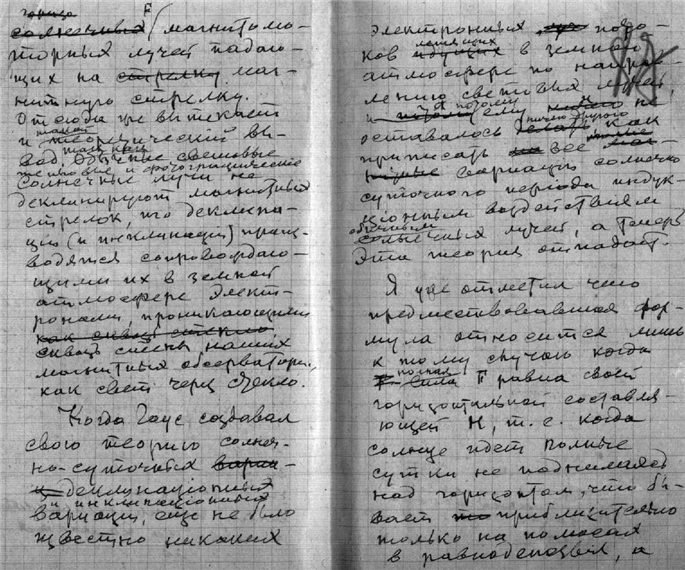 магнитомо-
торных лучей падаю-
щих на стрелку маг-
нитную стрелку.
Отсюда уже вытекает
и теоретический вы-
вод. Обычные световые
тепловые и фотографические
солнечные лучи не
деклинируют магнитных
стрелок, что деклина-
ции (и инклинации) произ-
водятся сопровождаю-
щими их в земной
атмосфере элект-
ронами проникающими
как сквозь стекло
сквозь стены наших
магнитных обсерваторий,
как свет через стекло.
Когда Гаус создавал
свою теорию солнеч-
но-суточных
деклинационных
и инклинационных
вариаций, еще не было
известно никаких
электронных пото-
ков идущих в земной
атмосфере по направ-
лению световых лучей,
и поэтому ему не
оставалось ничего другого как
приписать все
вариации солнечно
суточного периода индук-
ционным воздействиям
солнечных лучей, а теперь
эта теория отпадает.
Я уже отметил что
предшествовавшая фор-
мула относится лишь
к тому случаю когда
полная сила F равна своей
горизонтальной составля-
ющей H, т. е. когда
солнце идет полные
сутки не поднимаясь
над горизонтом, что бы-
вает приблизительно
только на полюсах
в равноденствия, а